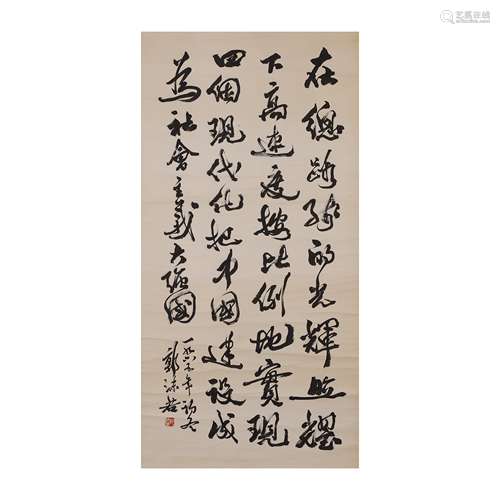 在總路線的光輝照耀
下高速度按比例地實現
四個現代化把中國建設成
為社會主義大強國
一九六年初冬
郭沫若
艺狐在线